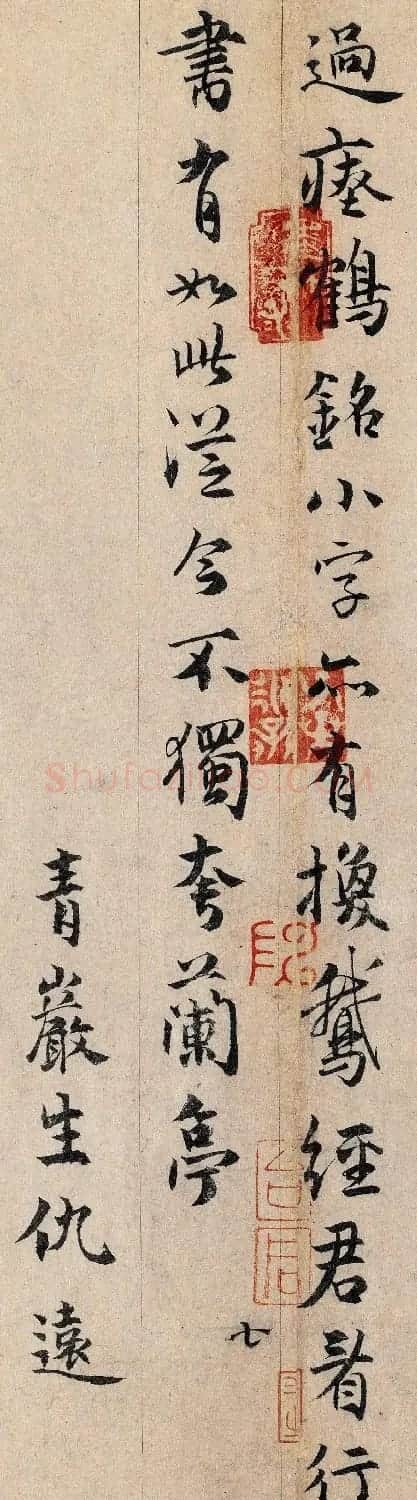 過瘞鶴銘小字亦有換鵝經君看行
書有如此從今不獨夸蘭亭
七
青巖生仇遠